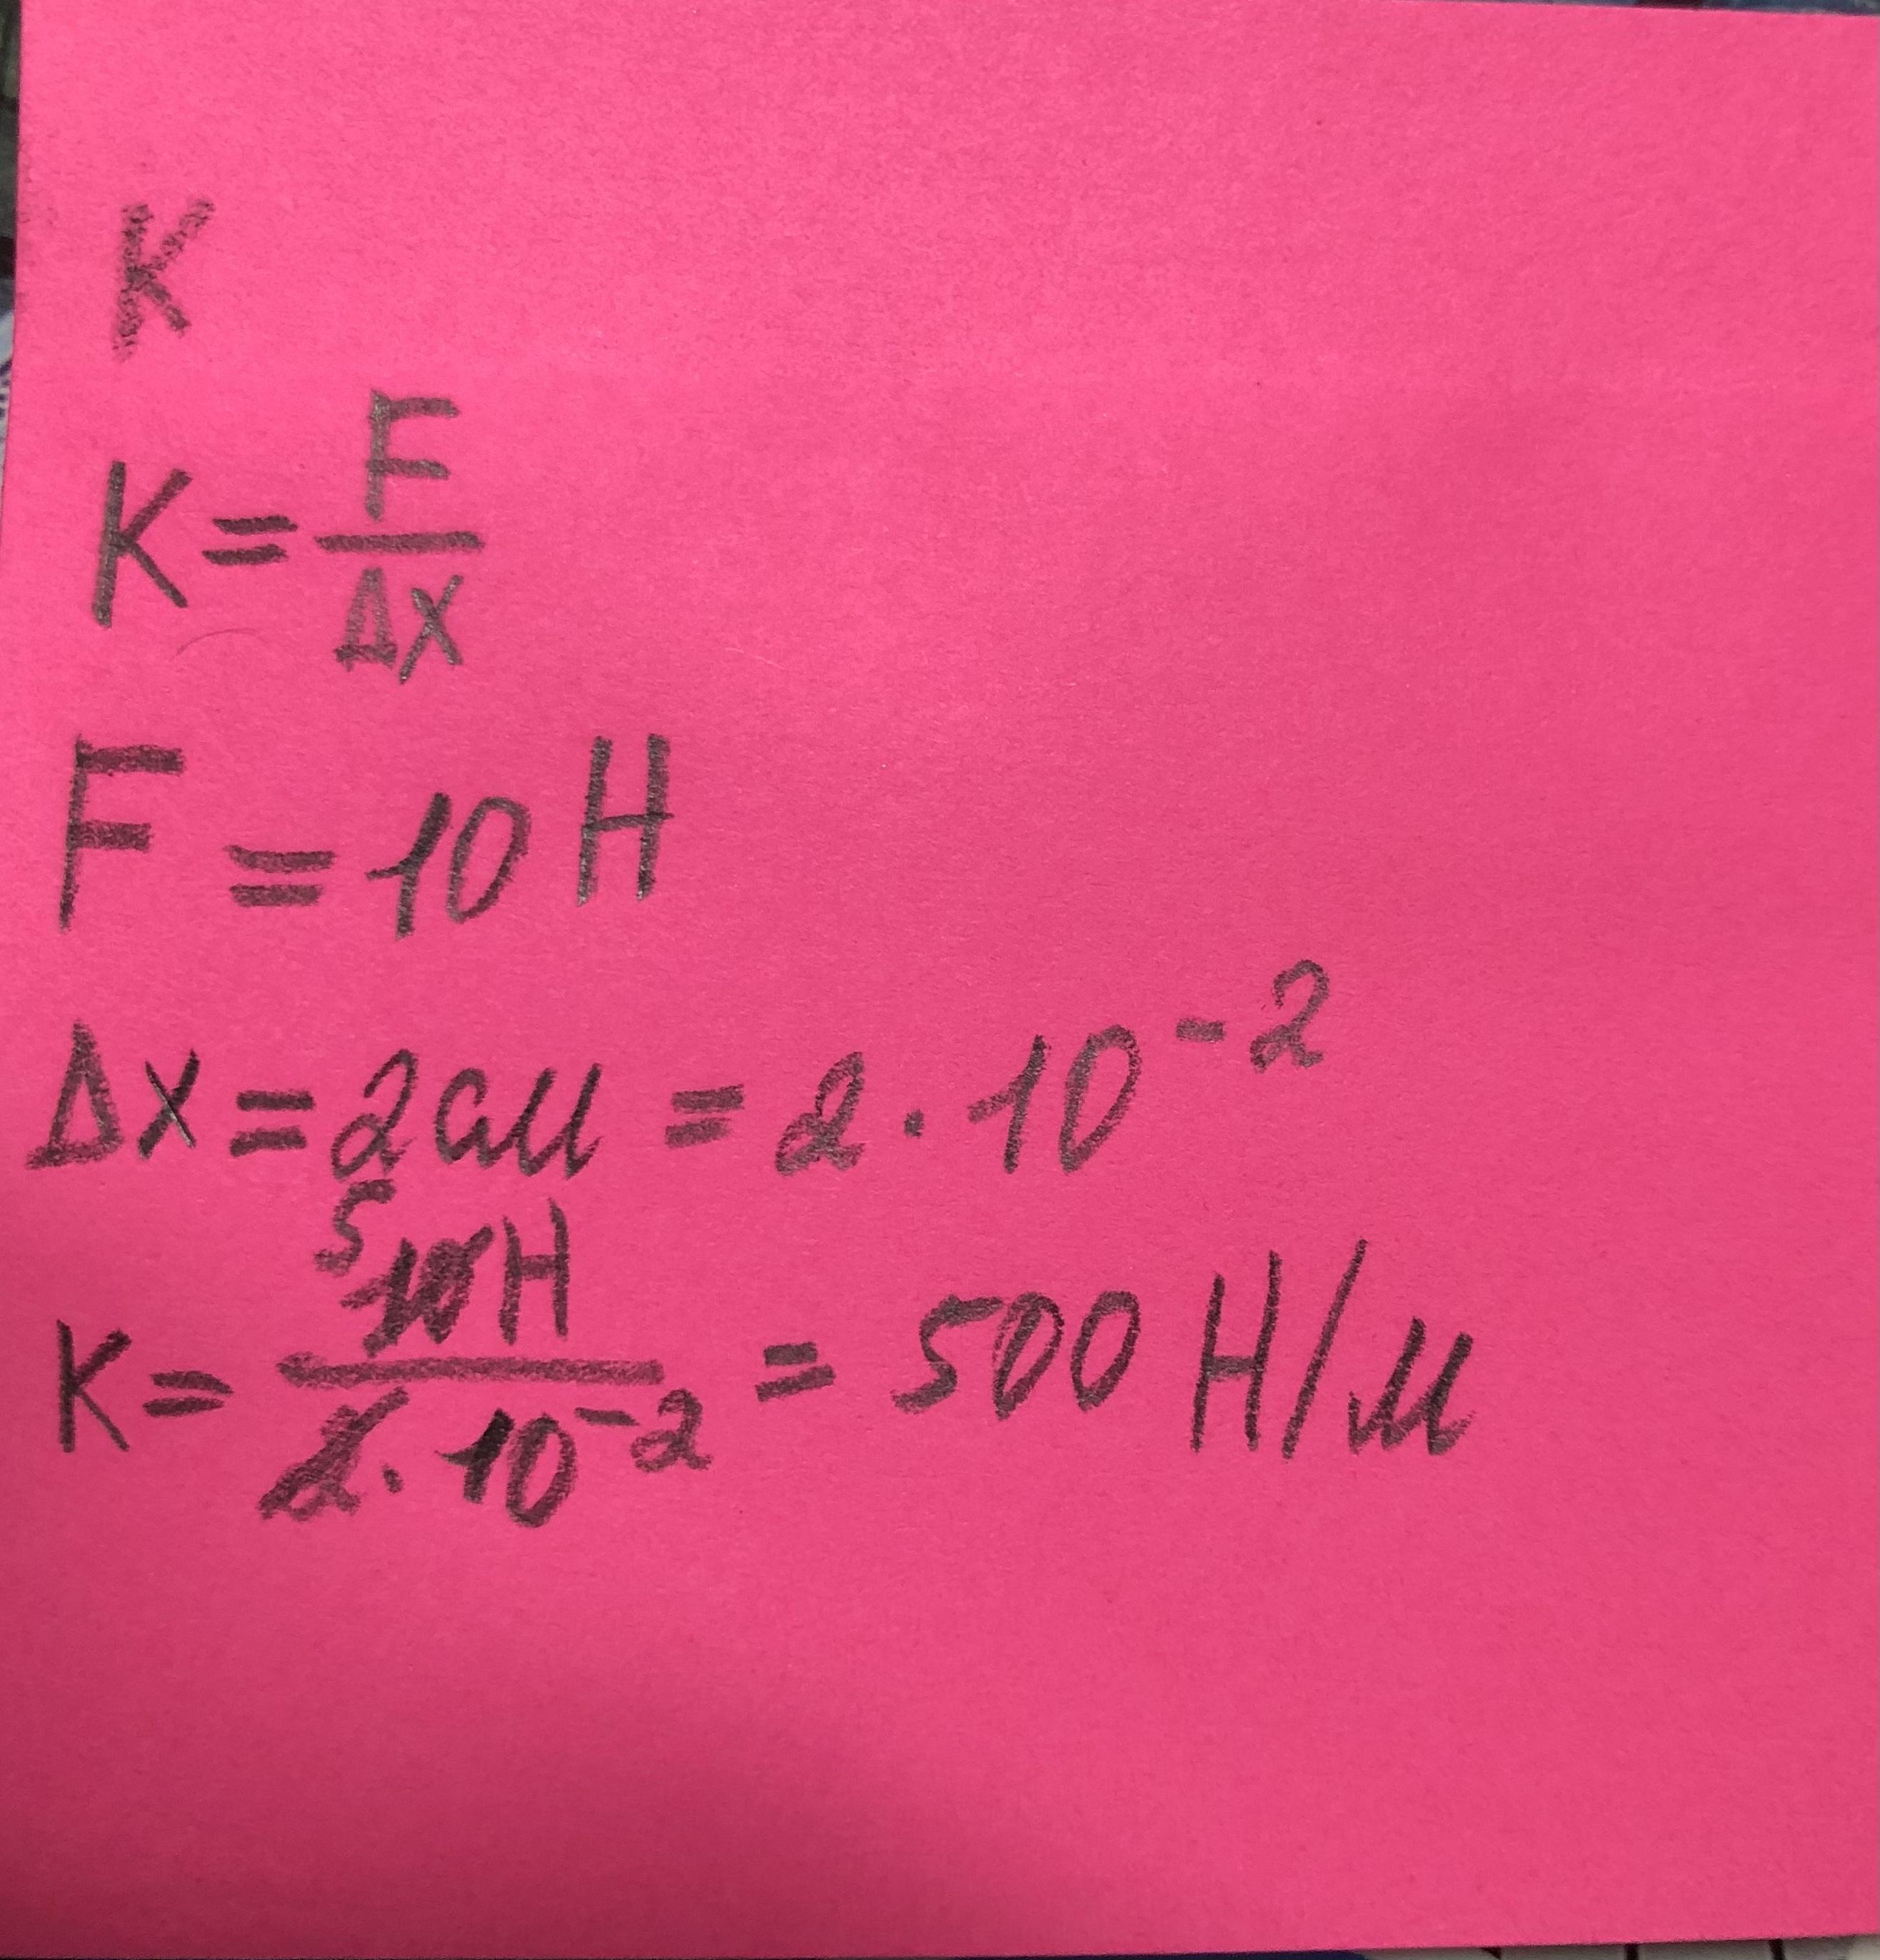 K
K = F / Δx
F = 10 Н
Δx = 2 см = 2 · 10⁻²
K = 5 10 Н / 2 · 10⁻² = 500 Н/м